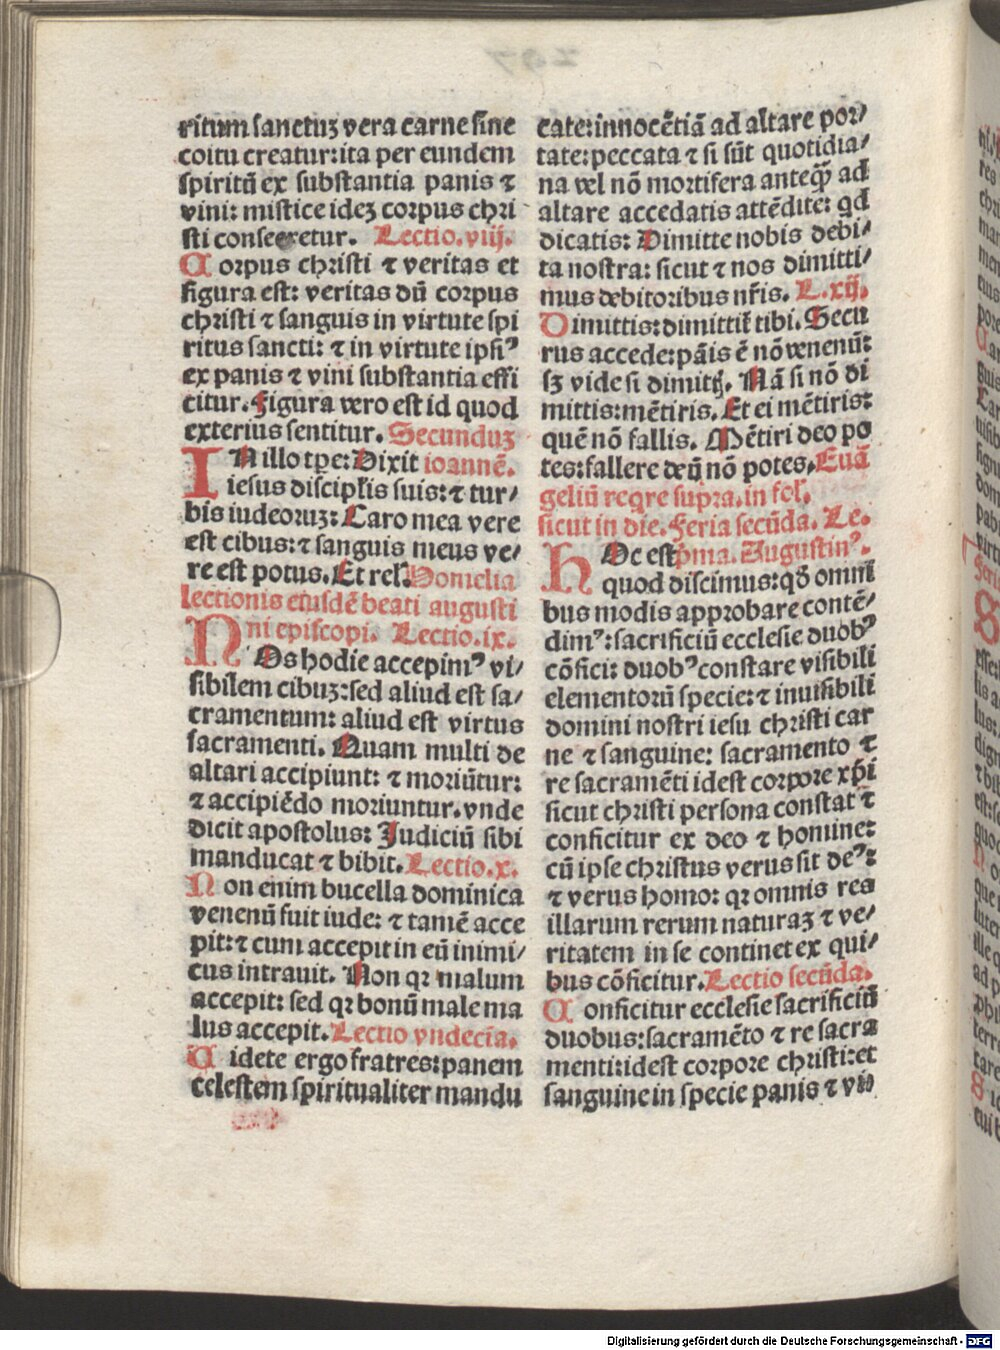 ritum sanctuʒ vera carne sine
coitu creatur: ita per eundem
spiritū ex substantia panis ⁊
vini: mistice ideʒ corpus chri
sti consecretur. Lectio. viij.
Corpus christi ⁊ veritas et
figura est: veritas dū corpus
christi ⁊ sanguis in virtute spi
ritus sancti: ⁊ in virtute ipsiꝰ
ex panis ⁊ vini substantia effi
citur. Figura vero est id quod
exterius sentitur. Secunduʒ
IN illo tꝑe: Dixit ioannē.
iesus discipl'is suis: ⁊ tur/
bis iudeoruʒ: Caro mea vere
est cibus: ⁊ sanguis meus ve/
re est potus. Et rel'. Homelia
lectionis eiusdē beati augusti
ni episcopi. Lectio. ix.
NOs hodie accepimꝰ vi/
sibilem cibuʒ: sed aliud est sa/
cramentum: aliud est virtus
sacramenti. Quam multi de
altari accipiunt: ⁊ moriūtur:
⁊ accipiēdo moriuntur. vnde
dicit apostolus: Judiciū sibi
manducat ⁊ bibit. Lectio. x.
Non enim bucella dominica
venenū fuit iude: ⁊ tamē acce
pit: ⁊ cum accepit in eū inimi/
cus intrauit. Non qꝛ malum
accepit: sed qꝛ bonū male ma
lus accepit. Lectio vndecīa.
Uidete ergo fratres: panem
celestem spiritualiter mandu
cate: innocētiā ad altare por/
tate: peccata ⁊ si sūt quotidia/
na vel nō mortifera anteqꝫ̄ ad
altare accedatis attēdite: qd
dicatis: Dimitte nobis debi/
ta nostra: sicut ⁊ nos dimitti/
mus debitoribus nr̄is. L. xij.
Dimittis: dimittit̄ tibi. Secu
rus accede: pāis ē nō venenū:
sʒ vide si dimittꝭ. Nā si nō di
mittis: mētiris. Et ei mētiris:
quē nō fallis. Mētiri deo po
tes: fallere deū nō potes. Euā
geliū reqre supra. in fol'.
sicut in die. Feria secūda. Le.
HOc est pͥma. Augustinꝰ.
quod discimus: qd̄ omni
bus modis approbare contē/
dimꝰ: sacrificiū ecclesie duobꝰ
cōfici: duobꝰ constare visibili
elementorū specie: ⁊ inuisibili
domini nostri iesu christi car
ne ⁊ sanguine: sacramento ⁊
re sacramēti idest corpore xp̄i
sicut christi persona constat ⁊
conficitur ex deo ⁊ homine:
cū ipse christus verus sit deꝰ:
⁊ verus homo: qꝛ omnis res
illarum rerum naturaʒ ⁊ ve/
ritatem in se continet ex qui/
bus cōficitur. Lectio secūda.
Conficitur ecclesie sacrificiū
duobus: sacramēto ⁊ re sacra
menti: idest corpore christi: et
sanguine in specie panis ⁊ vi
Digitalisierung gefördert durch die Deutsche Forschungsgemeinschaft - DFG